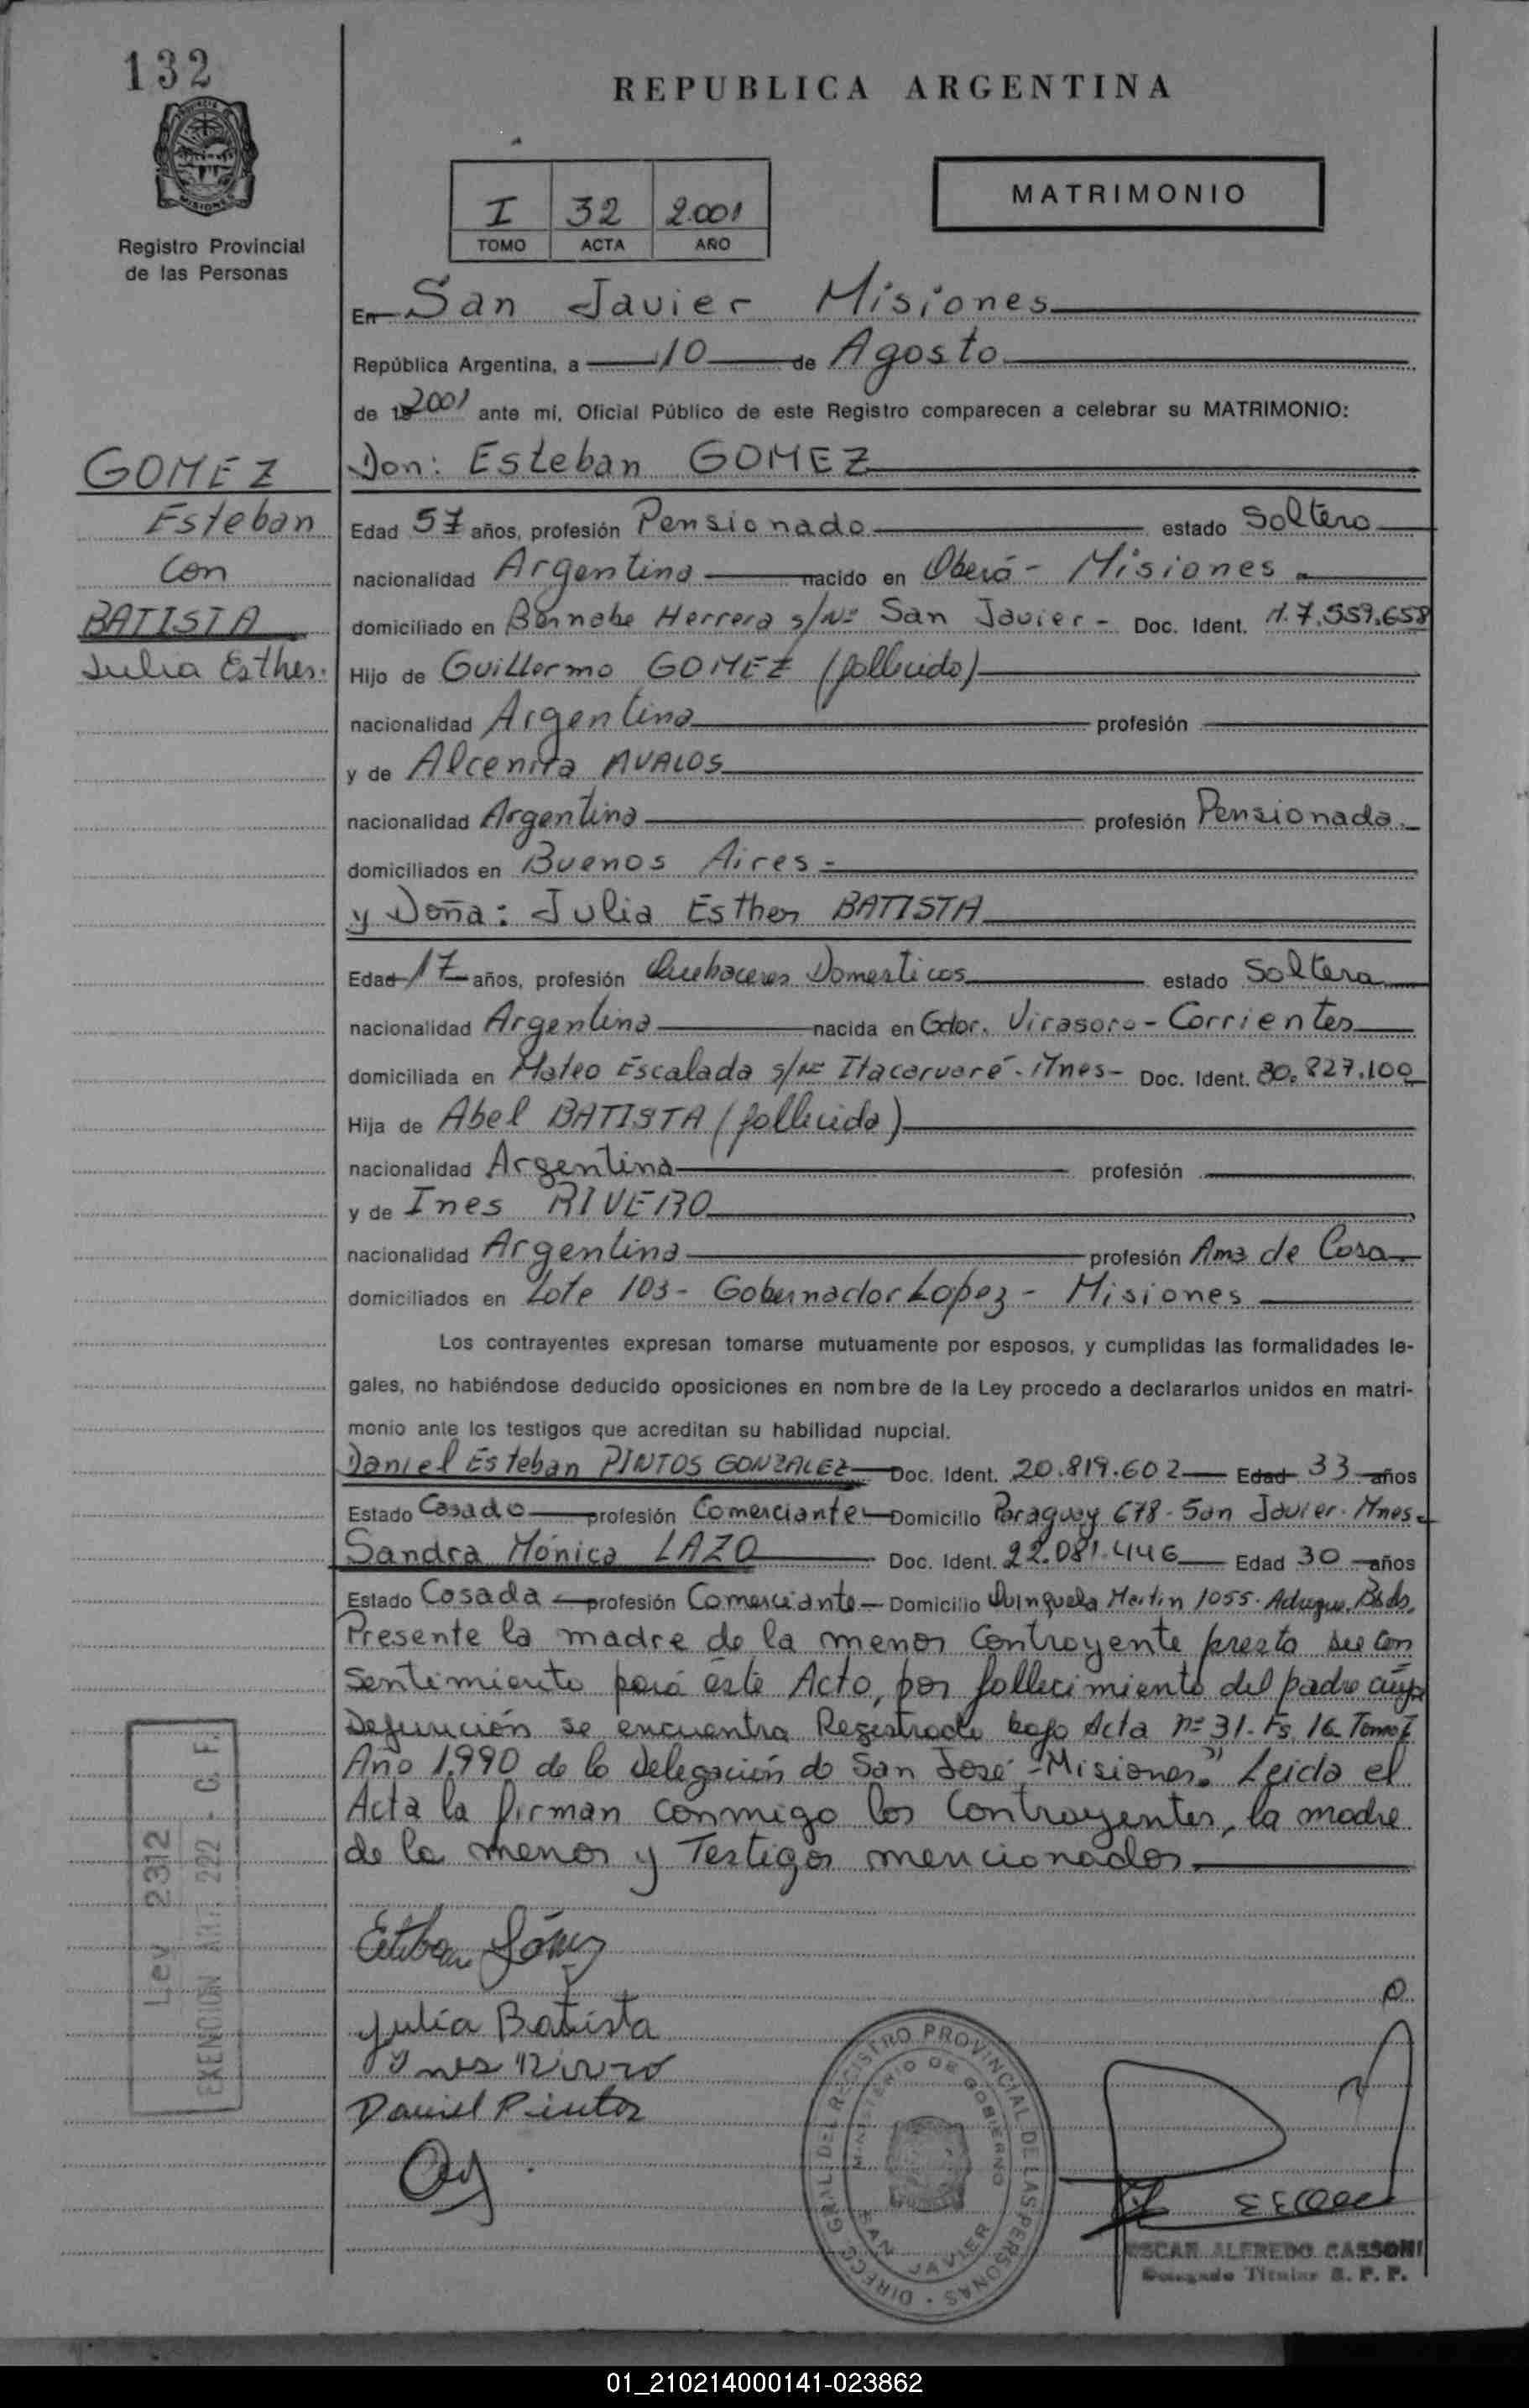 132
REPUBLICA ARGENTINA
MISIONES
Registro Provincial
de las Personas
I 32 2.001
TOMO ACTA AÑO
MATRIMONIO
En San Javier Misiones
República Argentina, a 10 de Agosto
de 19 2001 ante mí, Oficial Público de este Registro comparecen a celebrar su MATRIMONIO:
GOMEZ
Esteban
Con
BATISTA
Julia Esther.
Don: Esteban GOMEZ
Edad 57 años, profesión Pensionado estado Soltero
nacionalidad Argentina nacido en Oberá - Misiones
domiciliado en Bernabe Herrera s/Nº San Javier - Doc. Ident. M.7.559.658
Hijo de Guillermo GOMEZ (fallecido)
nacionalidad Argentina profesión
y de Alcenira AVALOS
nacionalidad Argentina profesión Pensionada
domiciliados en Buenos Aires -
y Doña: Julia Esther BATISTA
Edad 17 años, profesión Quehaceres Domesticos estado Soltera
nacionalidad Argentina nacida en Gdor. Virasoro - Corrientes
domiciliada en Mateo Escalada s/Nº Itacaruaré - Mnes - Doc. Ident. 30.827.100
Hija de Abel BATISTA (fallecido)
nacionalidad Argentina profesión
y de Ines RIVERO
nacionalidad Argentina profesión Ama de Casa
domiciliados en Lote 103 - Gobernador Lopez - Misiones
Los contrayentes expresan tomarse mutuamente por esposos, y cumplidas las formalidades le-
gales, no habiéndose deducido oposiciones en nombre de la Ley procedo a declararlos unidos en matri-
monio ante los testigos que acreditan su habilidad nupcial.
Daniel Esteban PINTOS GONZALEZ Doc. Ident. 20.819.602 Edad 33 años
Estado Casado profesión Comerciante Domicilio Paraguay 678 - San Javier - Mnes.
Sandra Mónica LAZO Doc. Ident. 22.081.446 Edad 30 años
Estado Casada profesión Comerciante Domicilio Quinquela Martin 1055.
Presente la madre de la menor Contrayente presta su Con
sentimiento para éste Acto, por fallecimiento del padre cuya
Defunción se encuentra Registrada bajo Acta nº 31 - Fs. 16 Tomo I
Año 1.990 de la Delegación de San José - Misiones." Leida el
Acta la firman conmigo los Contrayentes, la madre
de la menor y Testigos mencionados.
Ley 2312
EXENCION ART. 222 - C. F.
Esteban Gómez
Julia Batista
Ines Rivero
Daniel Pintos
DIRECC. GRAL. DEL REGISTRO PROVINCIAL DE LAS PERSONAS
MINISTERIO DE GOBIERNO
SAN JAVIER
OSCAR ALFREDO CASSONI
Delegado Titular R. P. P.
01_210214000141-023862